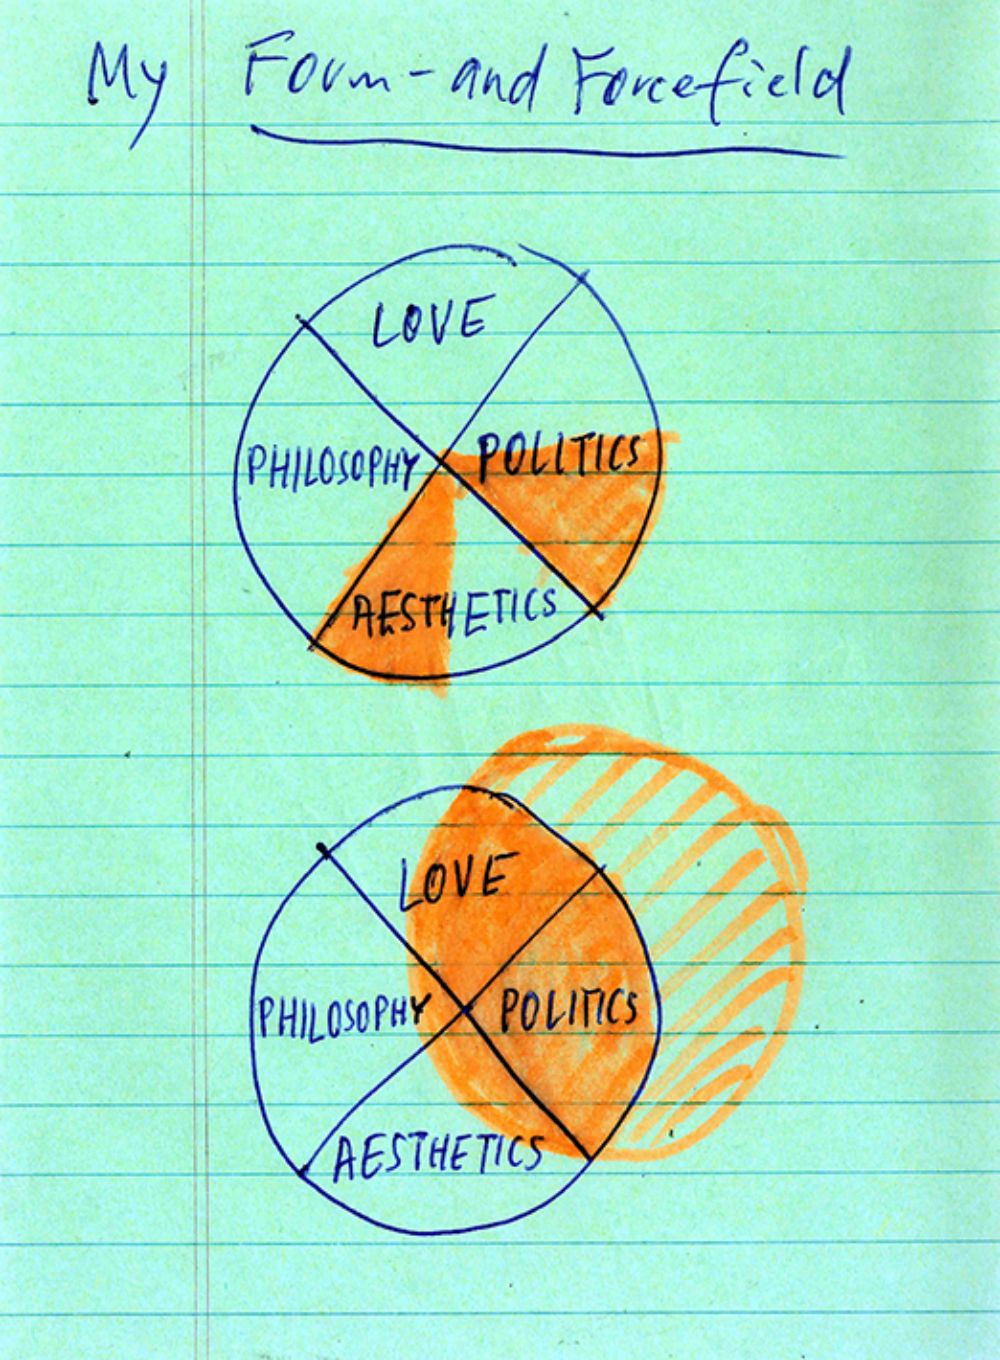 My Form-and Forcefield
LOVE
PHILOSOPHY
POLITICS
AESTHETICS
LOVE
PHILOSOPHY
POLITICS
AESTHETICS